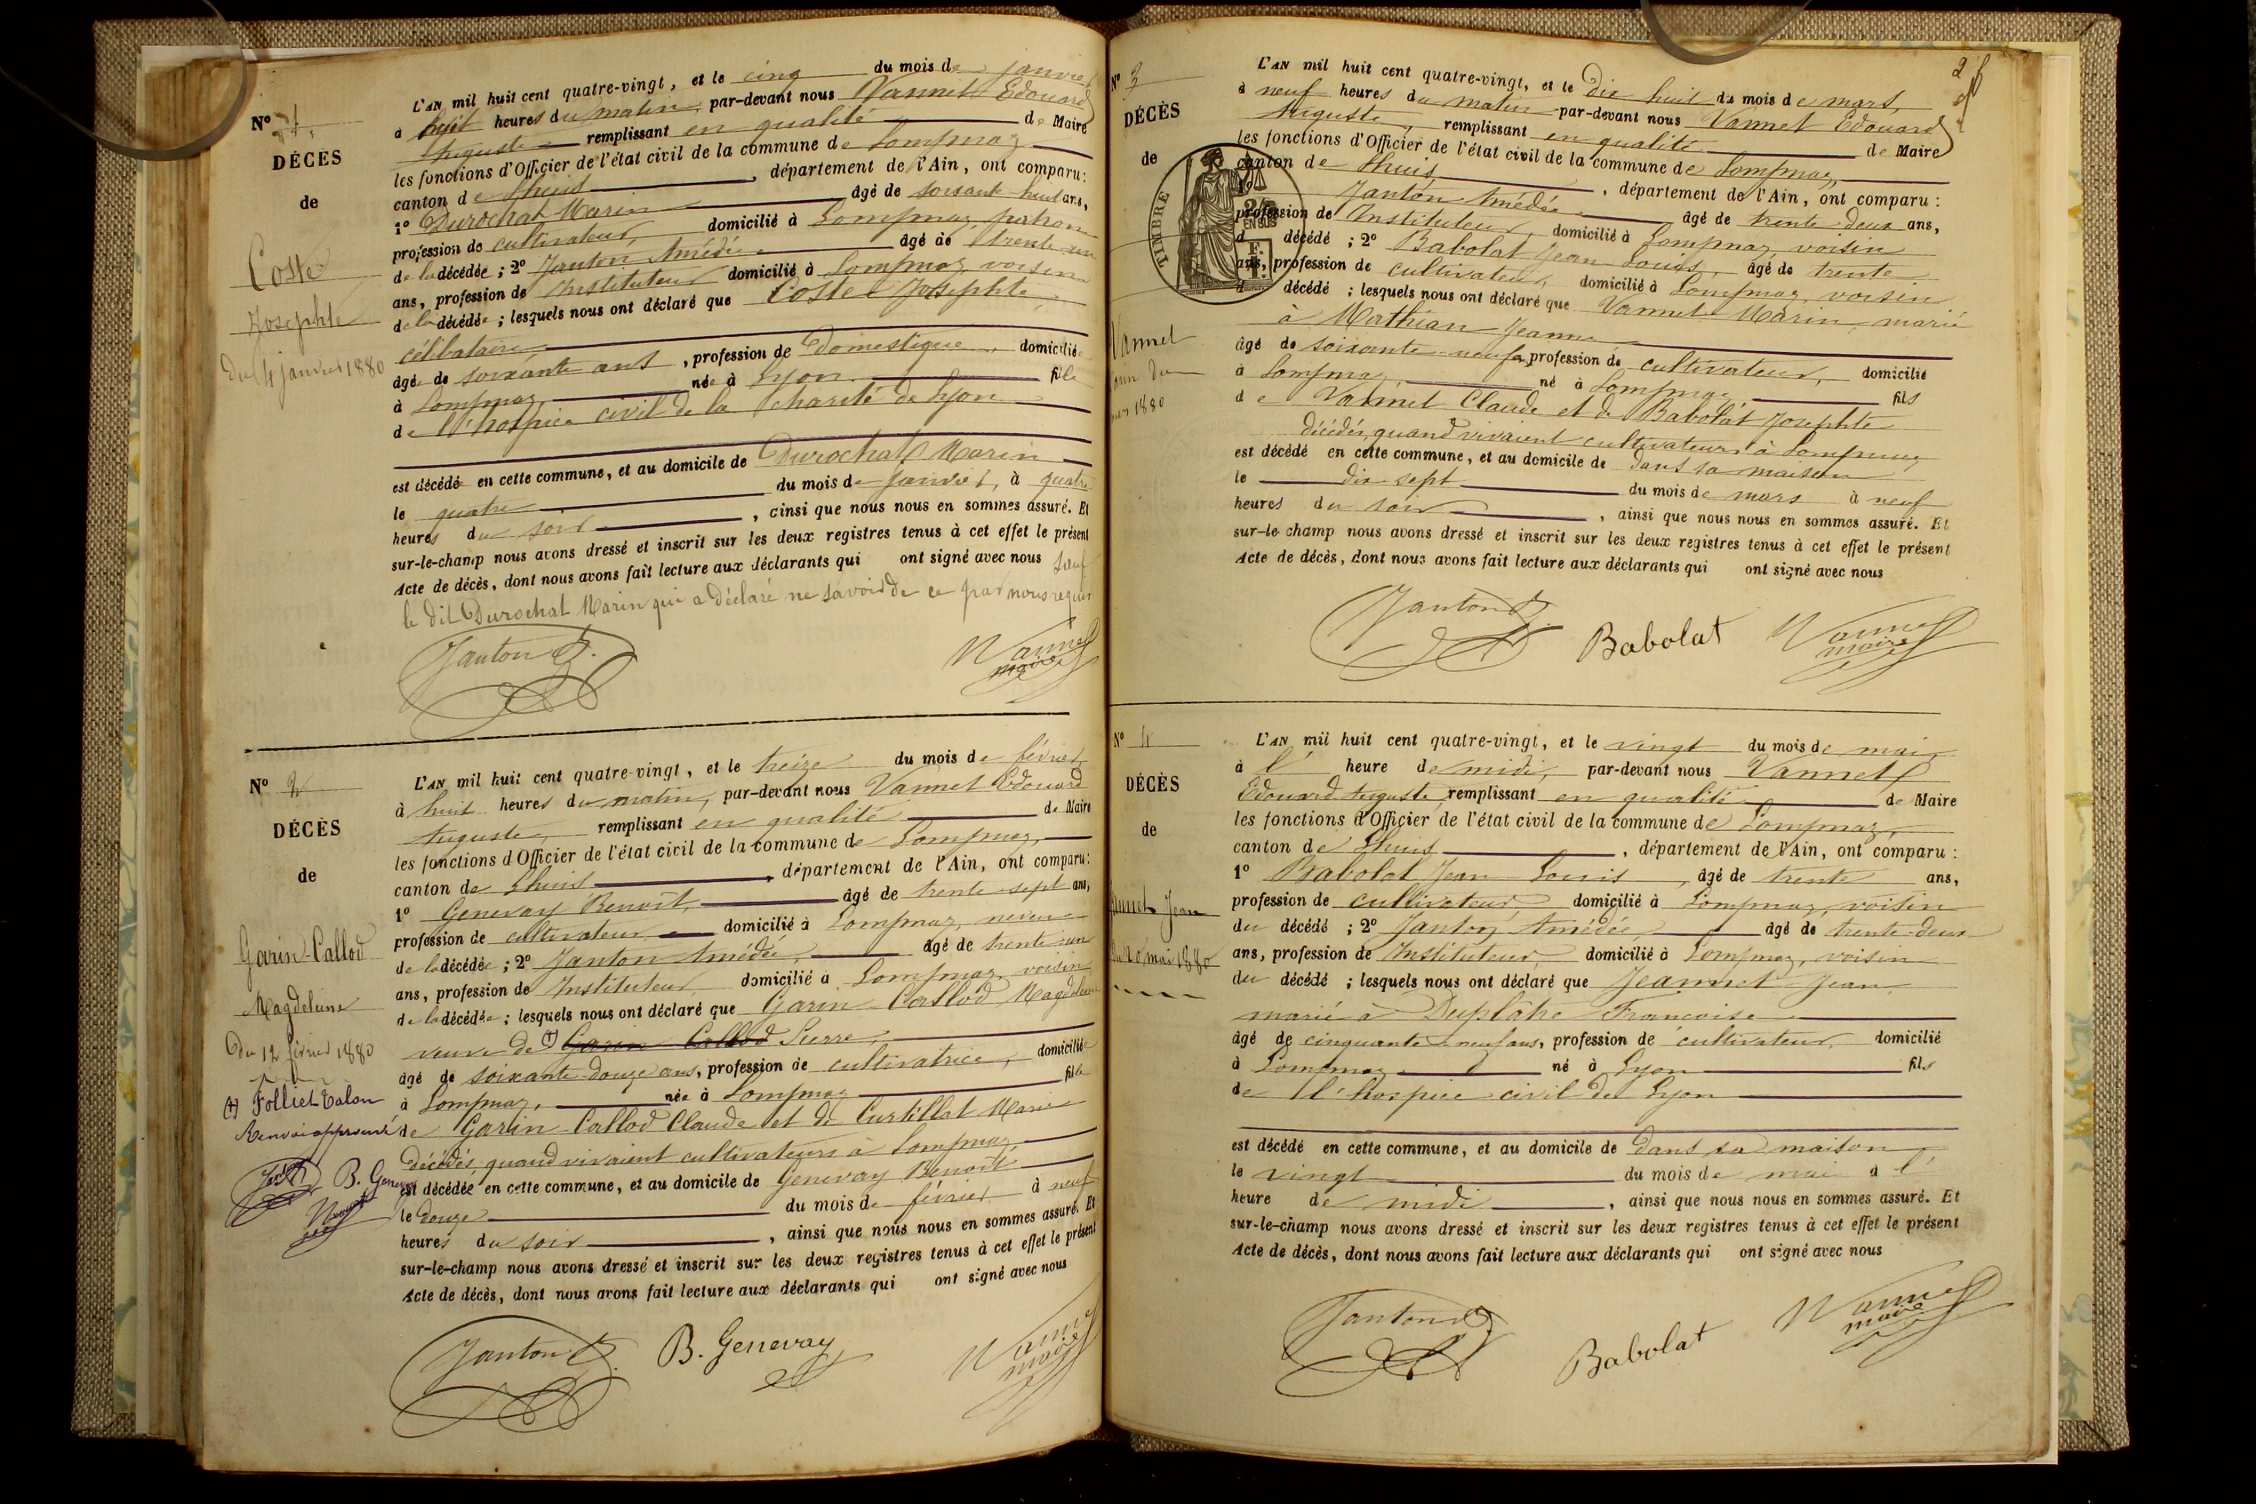 N° 1.
DÉCÈS
de
Coste
Josephte
Du 4 janvier 1880
L'AN mil huit cent quatre-vingt, et le cinq du mois de janvier
à huit heures du matin, par-devant nous Vannet Edouard
Auguste remplissant en qualité de Maire
les fonctions d'Officier de l'état civil de la commune de Lompnaz
canton de Lhuis, département de l'Ain, ont comparu :
1° Durochat Marin âgé de soixante-huit ans,
profession de cultivateur, domicilié à Lompnaz, patron
de la décédée ; 2° Janton Amédée âgé de trente-un
ans, profession de Instituteur domicilié à Lompnaz, voisin
de la décédée ; lesquels nous ont déclaré que Coste Josephte,
célibataire
âgée de soixante ans, profession de Domestique, domiciliée
à Lompnaz, née à Lyon fille
de l'hospice civil de la Charité de Lyon
est décédée en cette commune, et au domicile de Durochat Marin
le quatre du mois de Janvier, à quatre
heures du soir, ainsi que nous nous en sommes assuré. Et
sur-le-champ nous avons dressé et inscrit sur les deux registres tenus à cet effet le présent
Acte de décès, dont nous avons fait lecture aux déclarants qui ont signé avec nous sauf
le dit Durochat Marin qui a déclaré ne savoir de ce par nous requis
Janton
Vannet
maire
N° 2
DÉCÈS
de
Garin-Callod
Magdeleine
Du 12 février 1880
(+) Folliet-Talon
Renvoi approuvé
B. Genevay
Vannet
L'AN mil huit cent quatre-vingt, et le treize du mois de février
à huit heures du matin, par-devant nous Vannet Edouard
Auguste, remplissant en qualité de Maire
les fonctions d'Officier de l'état civil de la commune de Lompnaz,
canton de Lhuis, département de l'Ain, ont comparu :
1° Genevay Benoît, âgé de trente-sept ans,
profession de cultivateur domicilié à Lompnaz, neveu
de la décédée ; 2° Janton Amédée, âgé de trente-un
ans, profession de Instituteur domicilié à Lompnaz, voisin
de la décédée ; lesquels nous ont déclaré que Garin-Callod Magdeleine
veuve de (+) Garin Callod Pierre,
âgée de soixante-douze ans, profession de cultivatrice, domiciliée
à Lompnaz, née à Lompnaz fille
de Garin-Callod Claude et de Curtillat Marie
décédés quand vivaient cultivateurs à Lompnaz
est décédée en cette commune, et au domicile de Genevay Benoît
le douze du mois de février à neuf
heures du soir, ainsi que nous nous en sommes assuré. Et
sur-le-champ nous avons dressé et inscrit sur les deux registres tenus à cet effet le présent
Acte de décès, dont nous avons fait lecture aux déclarants qui ont signé avec nous
Janton
B. Genevay
Vannet
maire
N° 3
DÉCÈS
de
Vannet
1880
TIMBRE
EN SUS
L'AN mil huit cent quatre-vingt, et le dix huit du mois de mars,
à neuf heures du matin par-devant nous Vannet Edouard
Auguste, remplissant en qualité de Maire
les fonctions d'Officier de l'état civil de la commune de Lompnaz,
canton de Lhuis, département de l'Ain, ont comparu :
Janton Amédée âgé de trente-deux ans,
profession de Instituteur, domicilié à Lompnaz voisin
d décédé ; 2° Babolat Jean Louis, âgé de trente
ans, profession de cultivateur, domicilié à Lompnaz, voisin
d décédé ; lesquels nous ont déclaré que Vannet Marin, marié
à Mathian Jeanne
âgé de soixante-neuf, profession de cultivateur, domicilié
à Lompnaz, né à Lompnaz, fils
de Vannet Claude et de Babolat Josephte
décédés, quand vivaient cultivateurs à Lompnaz,
est décédé en cette commune, et au domicile de dans sa maison
le dix sept du mois de mars à neuf
heures du soir, ainsi que nous nous en sommes assuré. Et
sur-le champ nous avons dressé et inscrit sur les deux registres tenus à cet effet le présent
Acte de décès, dont nous avons fait lecture aux déclarants qui ont signé avec nous
Janton
Babolat
Vannet
maire
N° 4
DÉCÈS
de
Jean
mai 1880
L'AN mil huit cent quatre-vingt, et le vingt du mois de mai,
à l' heure de midi, par-devant nous Vannet
Edouard Auguste, remplissant en qualité de Maire
les fonctions d'Officier de l'état civil de la commune de Lompnaz,
canton de Lhuis, département de l'Ain, ont comparu :
1° Babolat Jean Louis, âgé de trente ans,
profession de cultivateur, domicilié à Lompnaz, voisin
du décédé ; 2° Janton Amédée, âgé de trente-deux
ans, profession de Instituteur, domicilié à Lompnaz, voisin
du décédé ; lesquels nous ont déclaré que Jeannet Jean,
marié à Duplâtre Françoise
âgé de cinquante-neuf ans, profession de cultivateur, domicilié
à Lompnaz né à Lyon fils
de l'hospice civil de Lyon
est décédé en cette commune, et au domicile de dans sa maison
le vingt du mois de mai à l'
heure de midi, ainsi que nous nous en sommes assuré. Et
sur-le-champ nous avons dressé et inscrit sur les deux registres tenus à cet effet le présent
Acte de décès, dont nous avons fait lecture aux déclarants qui ont signé avec nous
Janton
Babolat
Vannet
maire